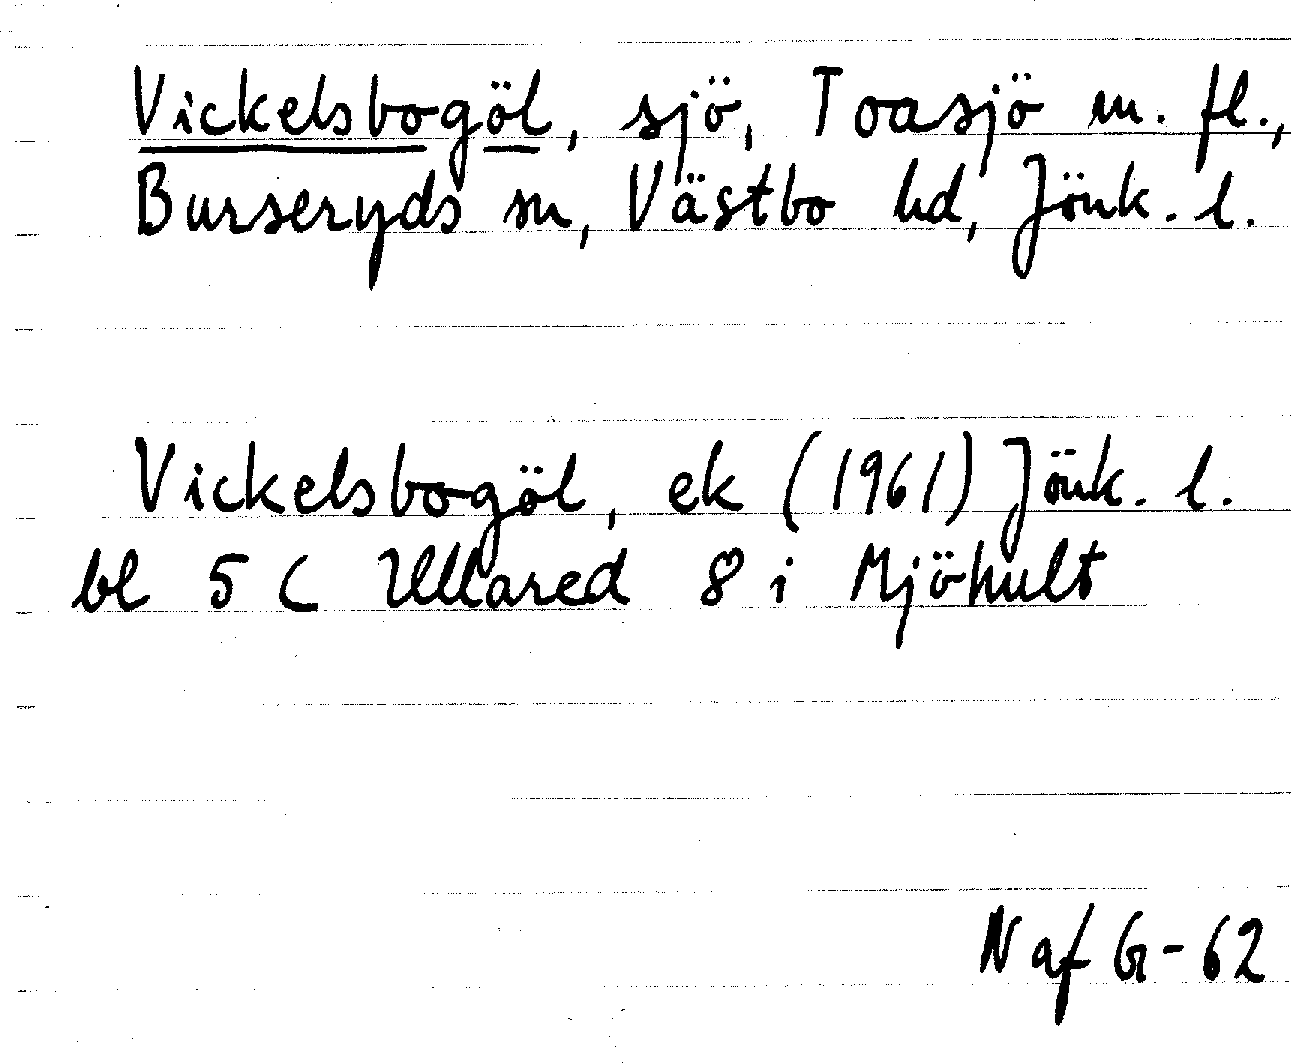 Vickelsbogöl, sjö, Toasjö m. fl.,
Burseryds sn, Västbo hd, Jönk. l.
Vickelsbogöl, ek (1961) Jönk. l.
bl 5 C Ullared 8 i Mjöhult
N af G-62